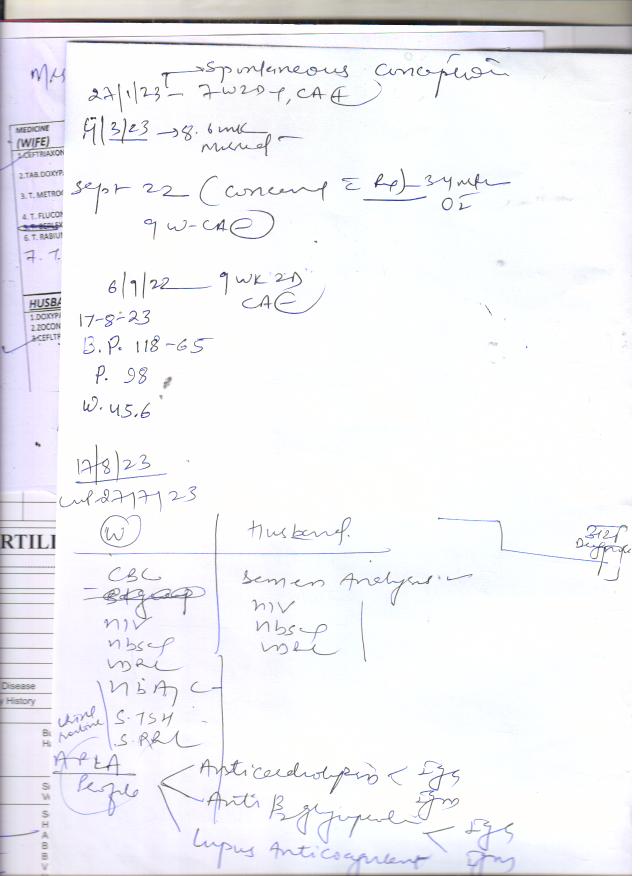 Spontaneous Conception
27/1/23 - 7W2D, CA+
9/3/23 → 8.6 wk missed
Sept 22 (Conceived c Rx) - 3 years
OI
9W - CA-
6/9/22 9 WK 2D
CA-
17-8-23
B.P. 118-65
P. 98
W. 45.6
17/8/23
LMP 27/7/23
W Husband
CBC Semen Analysis
HIV HIV
HbsAg HbsAg
VDRL VDRL
HbA1C
S. TSH
S. PRL
APLA
Profile
Anticardiolipin < IgG
IgM
Anti B2 glycoprotein < IgG
IgM
Lupus Anticoagulant
MEDICINE
(WIFE)
1.CEFTRIAXON
2.TAB.DOXYP
3. T. METRO
4. T. FLUCON
6. T. RABIU
HUSBA
1.DOXYP
2.ZOCON
3.CEFLTR
RTILI
Disease
y History